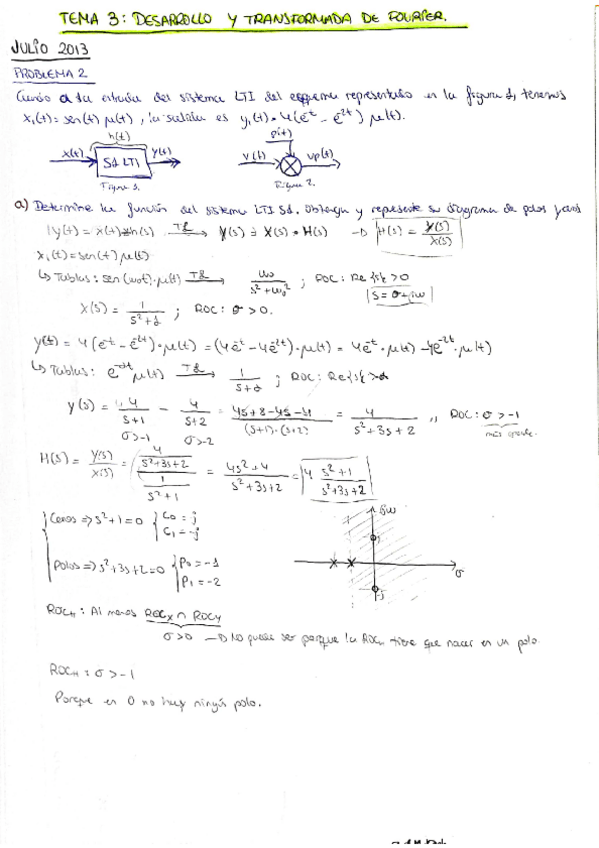 TEMA 3: DESARROLLO Y TRANSFORMADA DE FOURIER.
JULIO 2013
PROBLEMA 2
Cuando a la entrada del sistema LTI del esquema representado en la figura 1, tenemos
x₁(t) = sen(t) μ(t), la salida es y₁(t) = 4(e^-t - e^-2t) μ(t).
h(t) p(t)
x(t) S1 LTI y(t) v(t) vp(t)
Figura 1. Figura 2.
a) Determine la función del sistema LTI S1. Obtenga y represente su diagrama de polos y ceros
y(t) = x(t) * h(t) TL → Y(s) = X(s) · H(s) → H(s) = Y(s)/X(s)
x₁(t) = sen(t) μ(t)
↳ Tablas: sen(ω₀t) · μ(t) TL → ω₀/(s²+ω₀²) ; ROC: Re{s} > 0
|s = σ+jω|
X(s) = 1/(s²+1) ; ROC: σ > 0.
y(t) = 4(e^-t - e^-2t) · μ(t) = (4e^-t - 4e^-2t) · μ(t) = 4e^-t · μ(t) - 4e^-2t · μ(t)
↳ Tablas: e^-αt μ(t) TL → 1/(s+α) ; ROC: Re{s} > -α
Y(s) = 4/(s+1) - 4/(s+2) = (4s+8-4s-4)/((s+1)·(s+2)) = 4/(s²+3s+2) ,, ROC: σ > -1
σ>-1 σ>-2 más grande.
H(s) = Y(s)/X(s) = (4/(s²+3s+2))/(1/(s²+1)) = (4s²+4)/(s²+3s+2) = 4 (s²+1)/(s²+3s+2)
Ceros => s²+1=0 { C₀ = j
C₁ = -j
jω
j
Polos => s²+3s+2=0 { P₀ = -1
P₁ = -2
σ
-j
ROC_H: Al menos ROC_X ∩ ROC_Y
σ>0 → No puede ser porque la ROC_H tiene que nacer en un polo.
ROC_H = σ > -1
Porque en 0 no hay ningún polo.